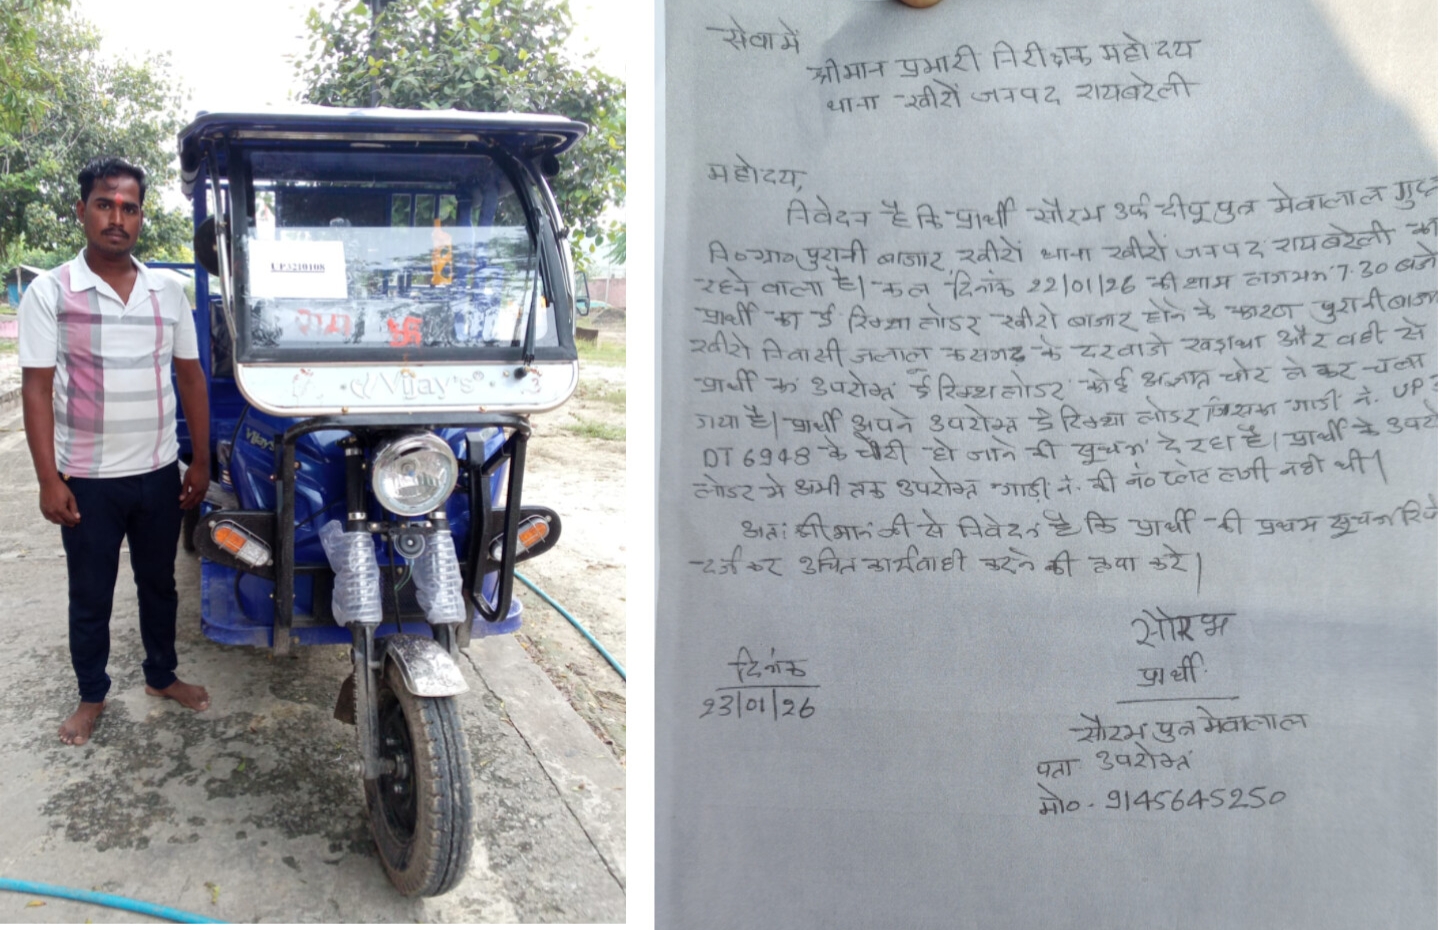 UP3210108
राम 卐
Vijay's
Vijay's
सेवा में
श्रीमान प्रभारी निरीक्षक महोदय
थाना खीरों जनपद रायबरेली
महोदय,
निवेदन है कि प्रार्थी सौरभ उर्फ दीपू पुत्र मेवालाल
नि०ग्रा० पुरानी बाजार, खीरों थाना खीरों जनपद रायबरेली का
रहने वाला है। कल दिनांक 22/01/26 की शाम लगभग 7.30 बजे
प्रार्थी का ई रिक्शा लोडर खीरों बाजार होने के कारण पुरानी बाजार
खीरों निवासी जलाल के दरवाजे खड़ा था और वही से
प्रार्थी का उपरोक्त ई रिक्शा लोडर कोई अज्ञात चोर लेकर चला
गया है। प्रार्थी अपने उपरोक्त ई रिक्शा लोडर जिसका गाड़ी नं. UP
DT 6948 के चोरी हो जाने की सूचना दे रहा है। प्रार्थी के उपरो
लोडर में अभी तक उपरोक्त गाड़ी नं. की नं० प्लेट लगी नही थी।
अतः श्रीमान जी से निवेदन है कि प्रार्थी की प्रथम सूचना रिपो
दर्ज कर उचित कार्यवाही करने की कृपा करे।
सौरभ
दिनांक प्रार्थी
23/01/26
सौरभ पुत्र मेवालाल
पता उपरोक्त
मो० - 9145645250